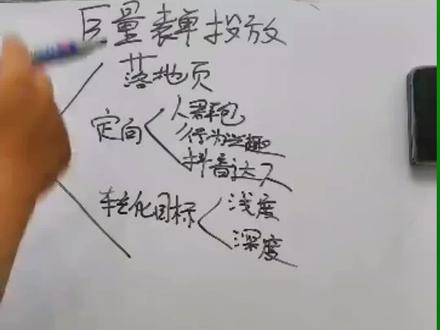 巨量表单投放
落地页
定向
人群包
行为兴趣
抖音达人
转化目标
浅度
深度